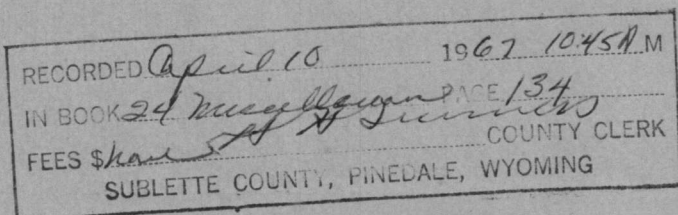 RECORDED April 10 1967 10:45A M
IN BOOK 24 Miscellaneous PAGE 134
FEES $ None COUNTY CLERK
SUBLETTE COUNTY, PINEDALE, WYOMING